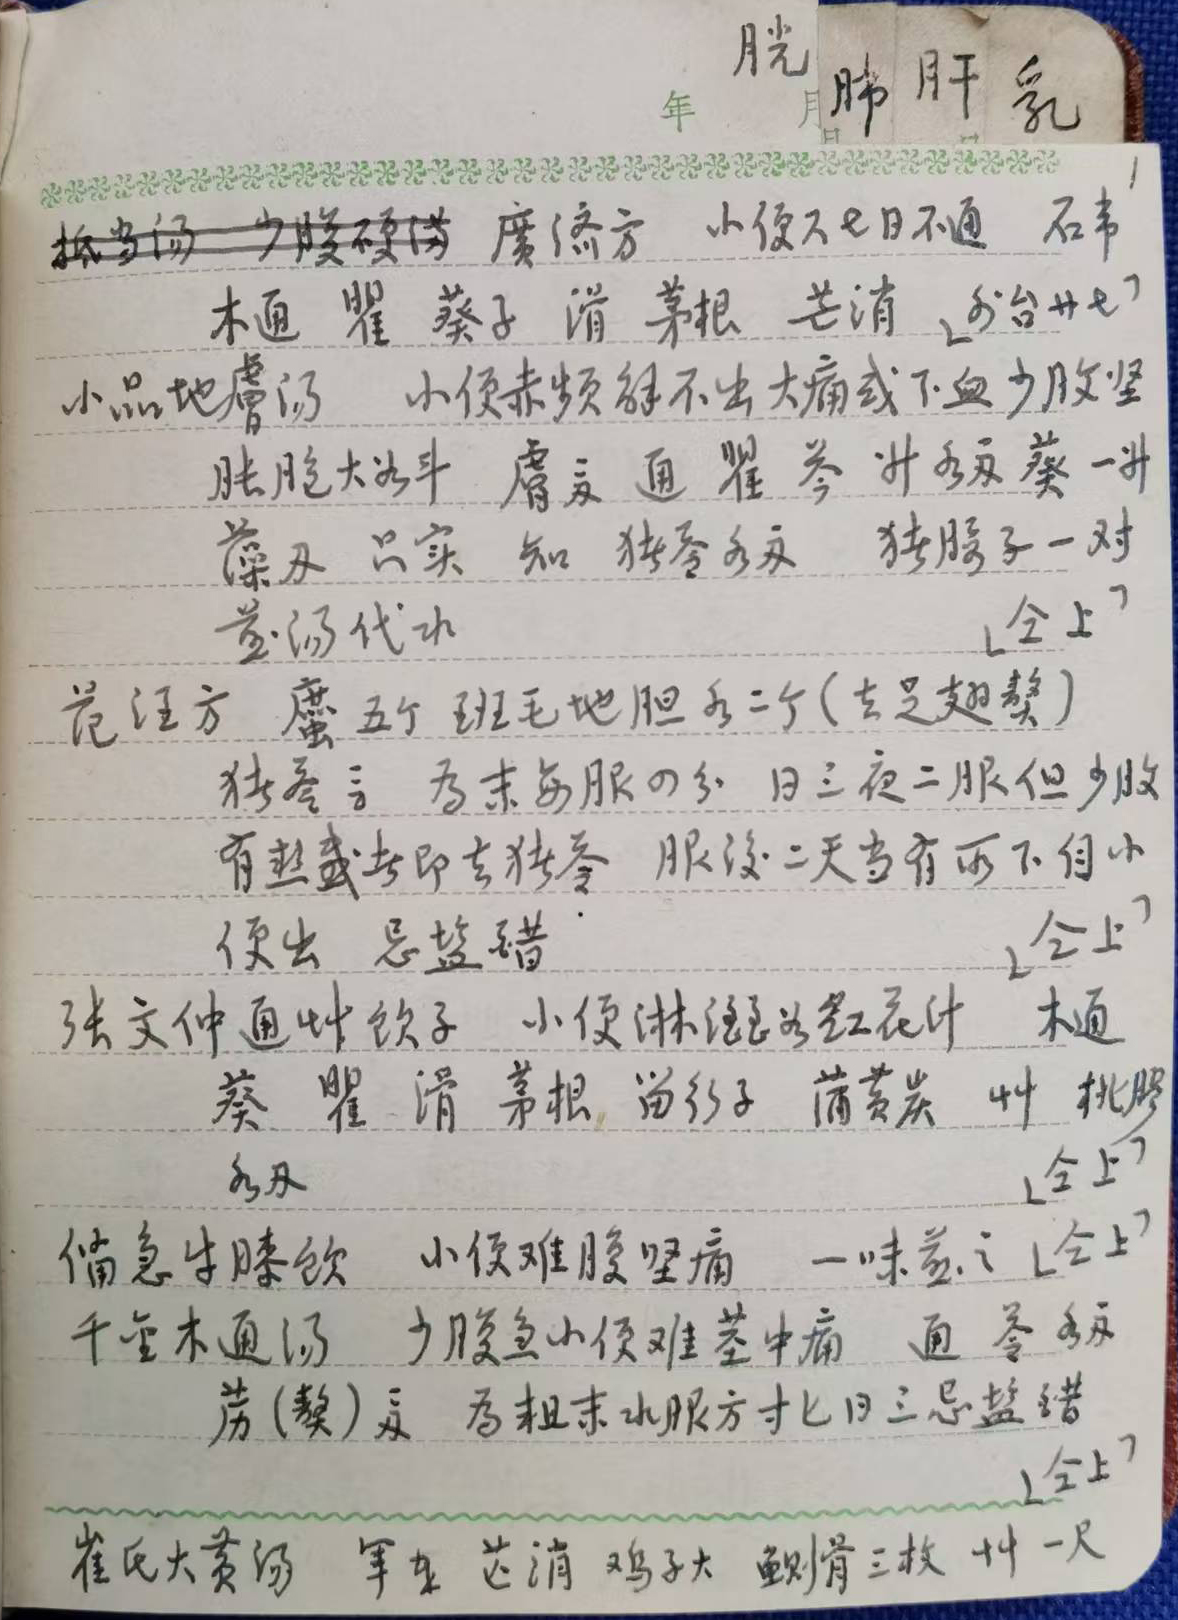 胱 肺 肝 乳
年 月 日
1
抵当汤 少腹硬满 廣济方 小便不七日不通 石韦
木通 瞿 葵子 滑 茅根 芒消 「外台廿七」
小品地膚汤 小便赤频 不出大痛或下血少腹坚
胀胞大 斗 膚 通 瞿 芩 升 各 葵 一升
藻 只实 知 猪苓各 猪腰子一对
煎汤代水 「仝上」
范汪方 䗪五个 班毛地胆各二个(去足翅熬)
猪苓 为末每服四分 日三夜二服但少腹
有热盛者即去猪苓 服後二天当有所下自小
便出 忌盐醋 「仝上」
张文仲通艸饮子 小便淋 红花汁 木通
葵 瞿 滑 茅根 留行子 蒲黄炭 艸 桃胶
各 「仝上」
備急牛膝饮 小便难腹坚痛 一味煎之 「仝上」
千金木通汤 少腹急小便难茎中痛 通 苓 各
苈(熬) 为粗末水服方寸匕日三忌盐醋
「仝上」
崔氏大黄汤 军 芒消 鸡子大 鲗骨三枚 艸 一尺